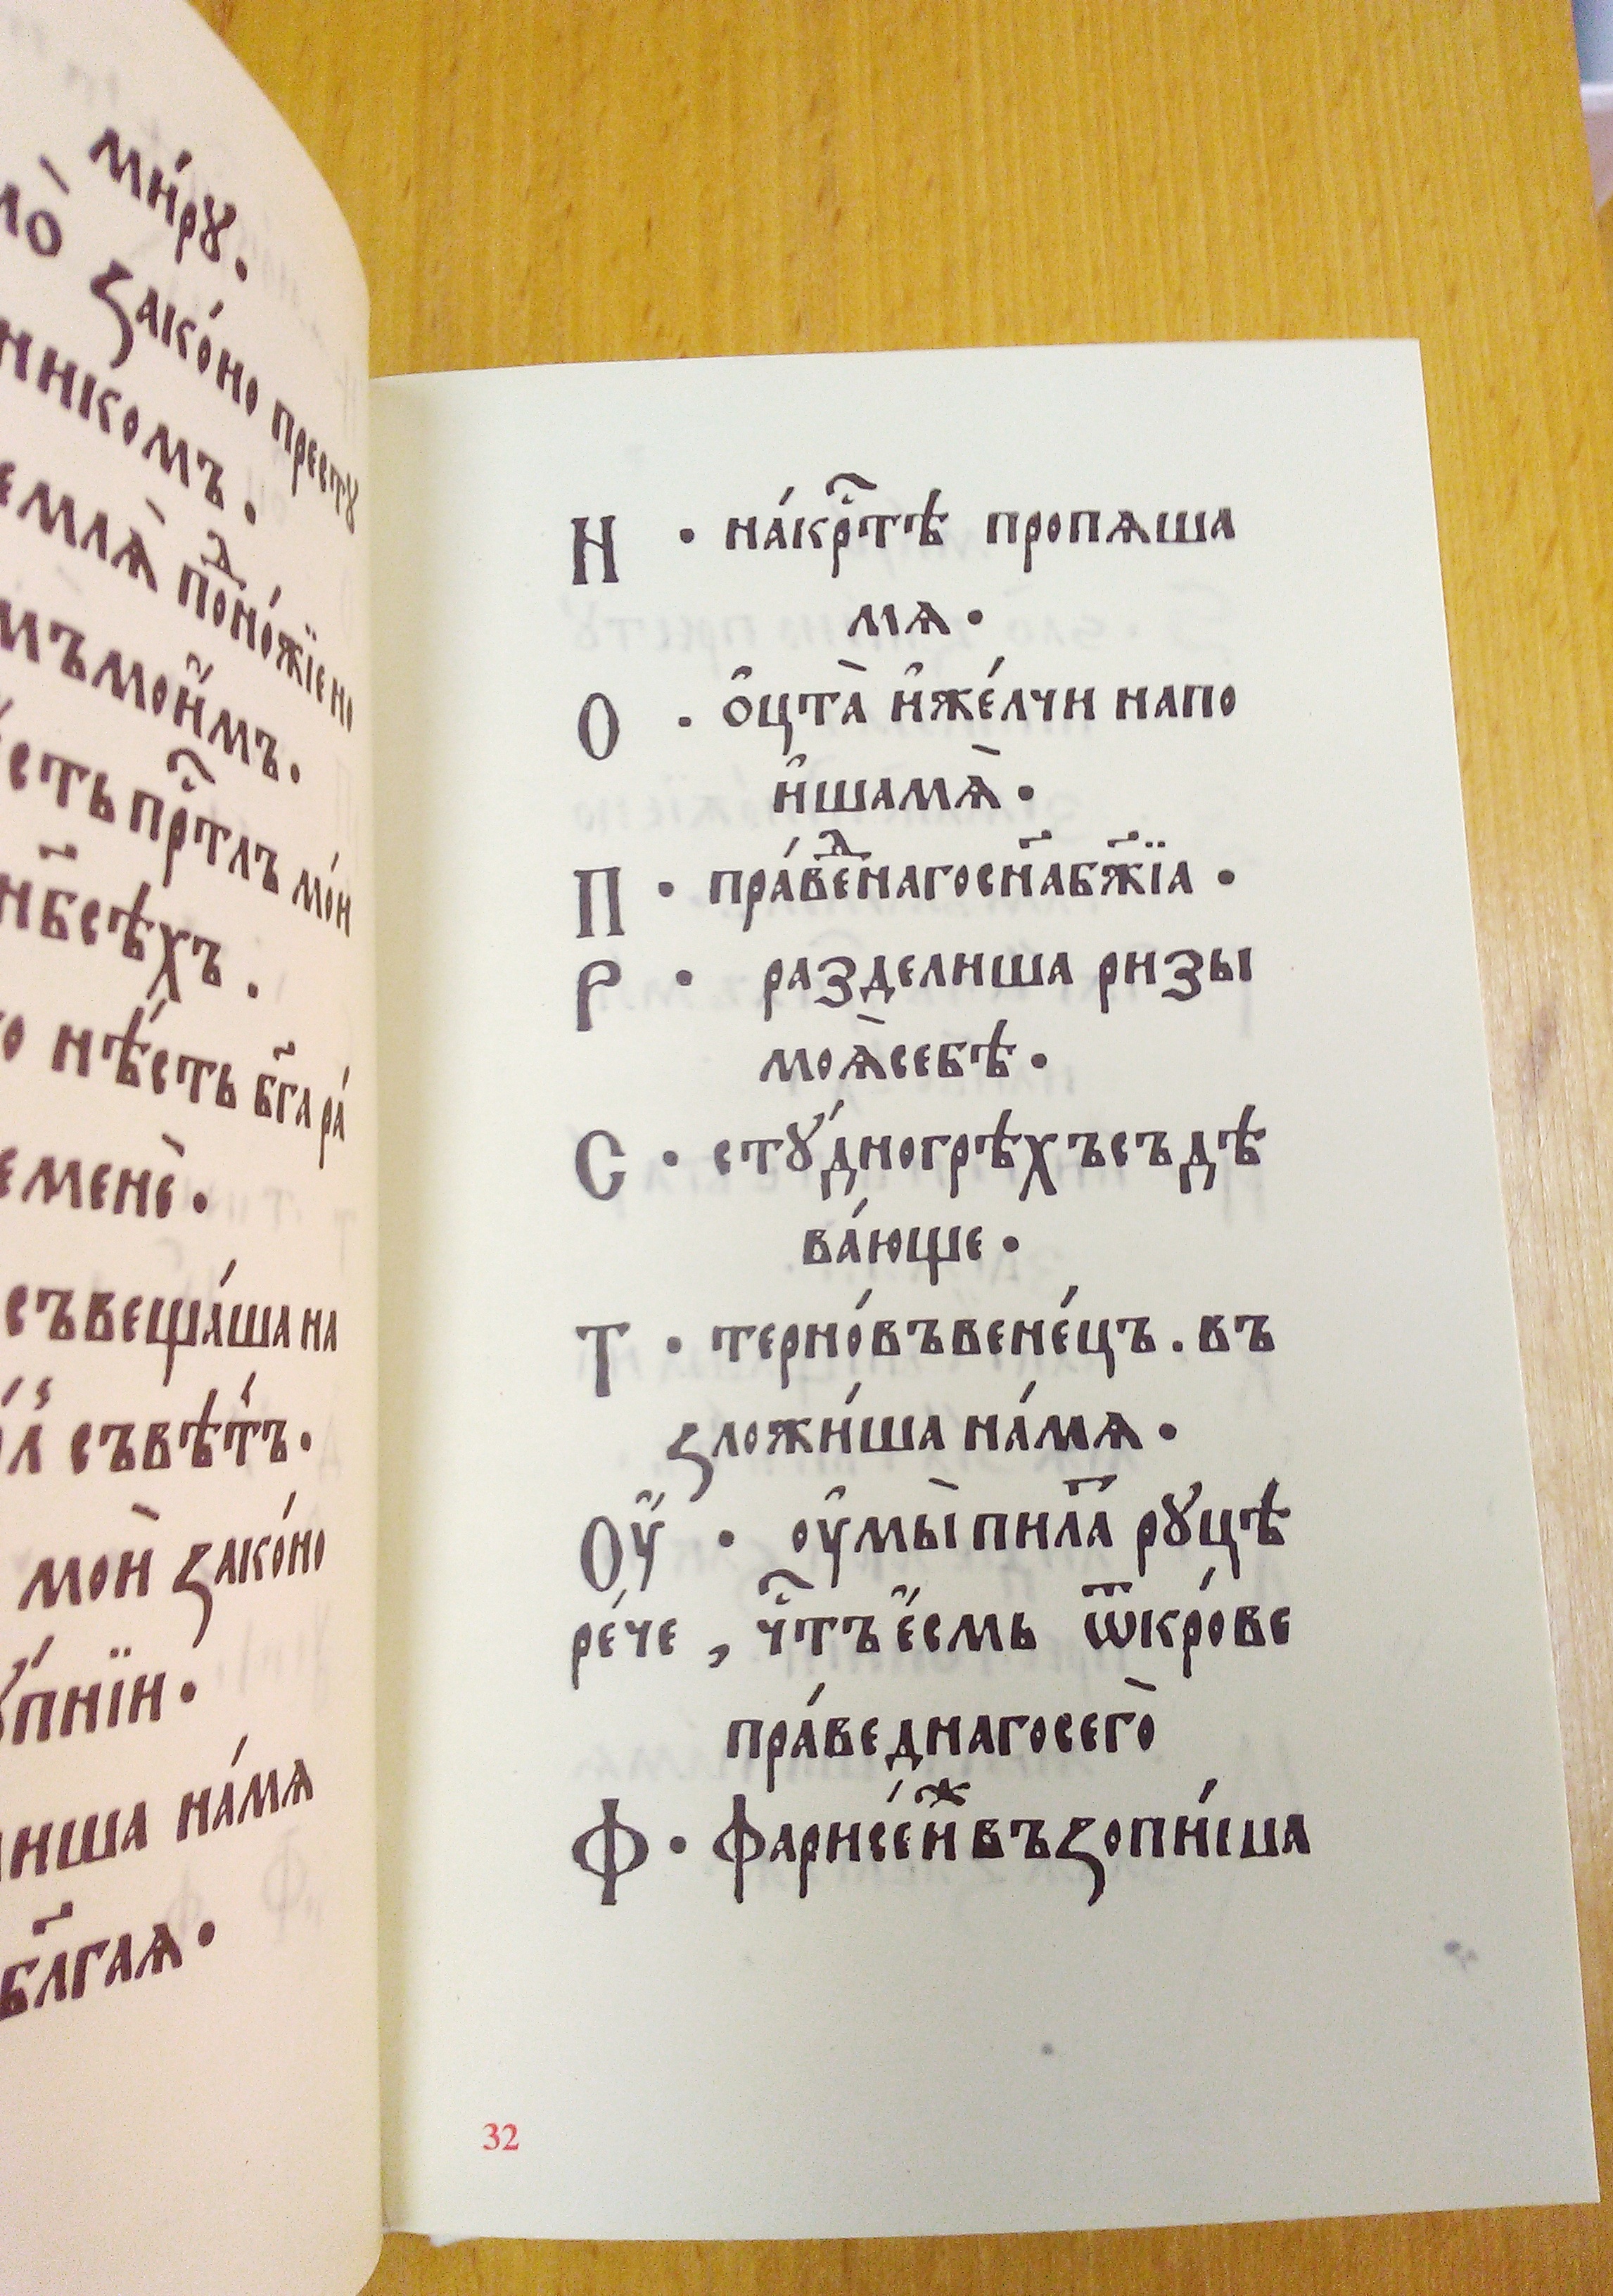 мн́рꙋ.
ло̀ ꙁако́но престꙋ
ннкомъ.
емлѧ̀ по҇ⷣно́жїе но
мъмон̑мъ.
сть пр҇тлъ мо́н
нб҃сѣхъ.
о нѣ́сть б҃га ра́
еменѐ.
съвеща́ша на
съвѣт́ъ.
мон̀ ꙁако́но
пнїн.
нша на́мѧ
бл҃гаѧ.
Н · на́кр҇тѣ пропѧша
мѧ.
О · о̑цта̀ н̑же́лчн напо
н̑шамѧ̀.
П · пра́веⷣнагосн҃аб҃жїа.
Р · разделнша рнзы
моѧ̀себѣ.
С · стꙋ́дногрѣхъсъдѣ
ва́юще.
Т · терно́въвене́цъ. въ
ꙁложн́ша на́мѧ.
Оу̑ · оу̑мы̀пнл҃а рꙋцѣ
ре́че, ч҇тъе̑смь ѿкро́ве
пра́веднагосего̀
Ф · фарнсе́нⷤвъꙁопн́ша
32